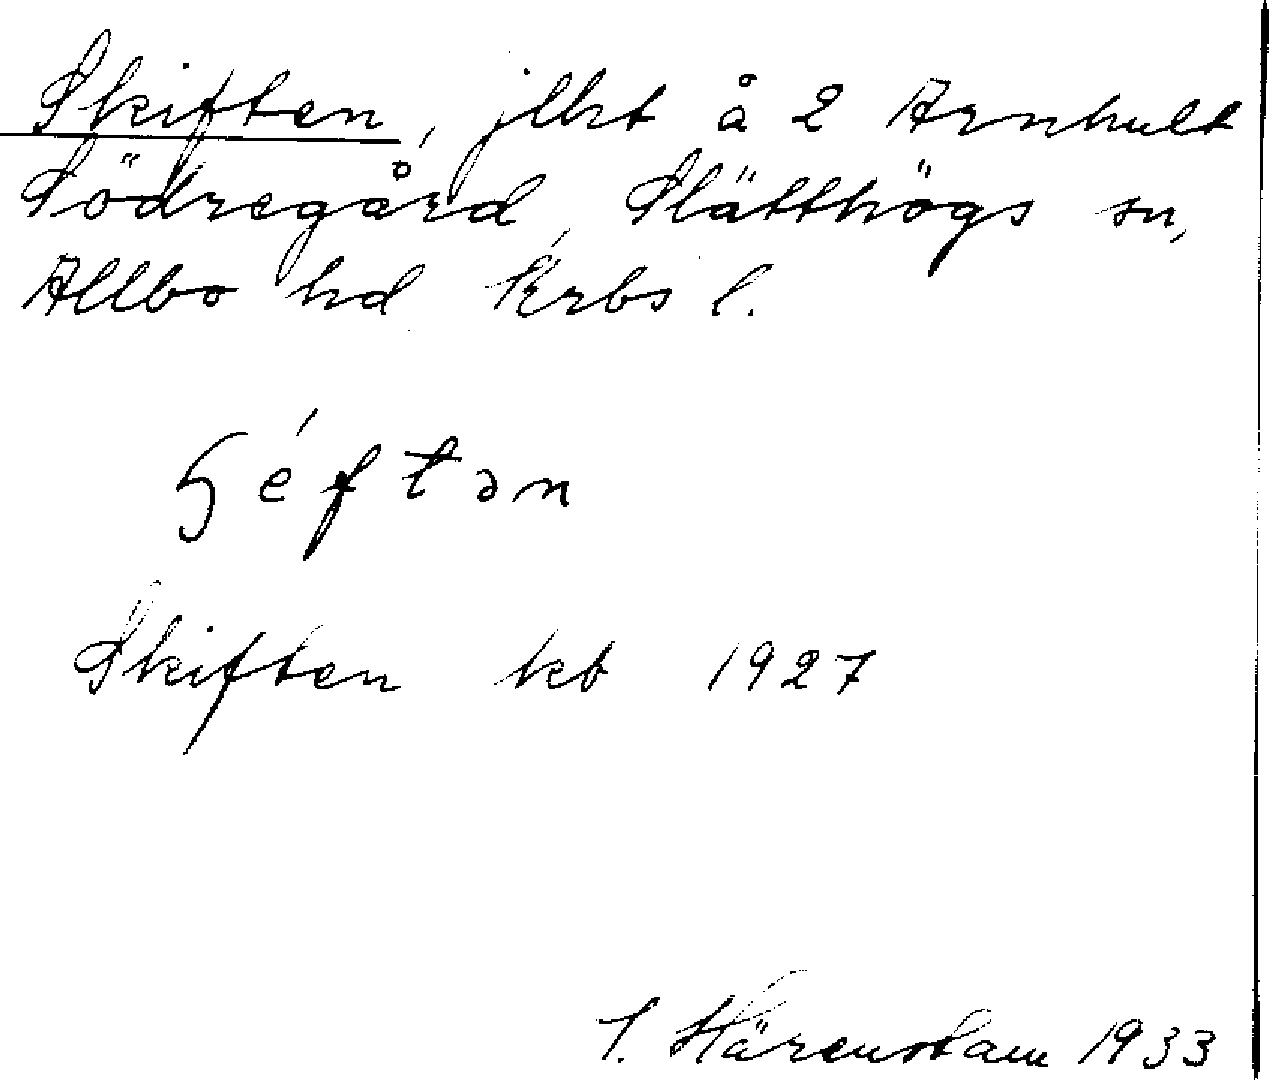 Skiften, jlht å 2 Arnhult
Södregård, Slätthögs sn,
Allbo hd Krbs l.
ɧéftən
Skiften kb 1927
I. Härenstam 1933